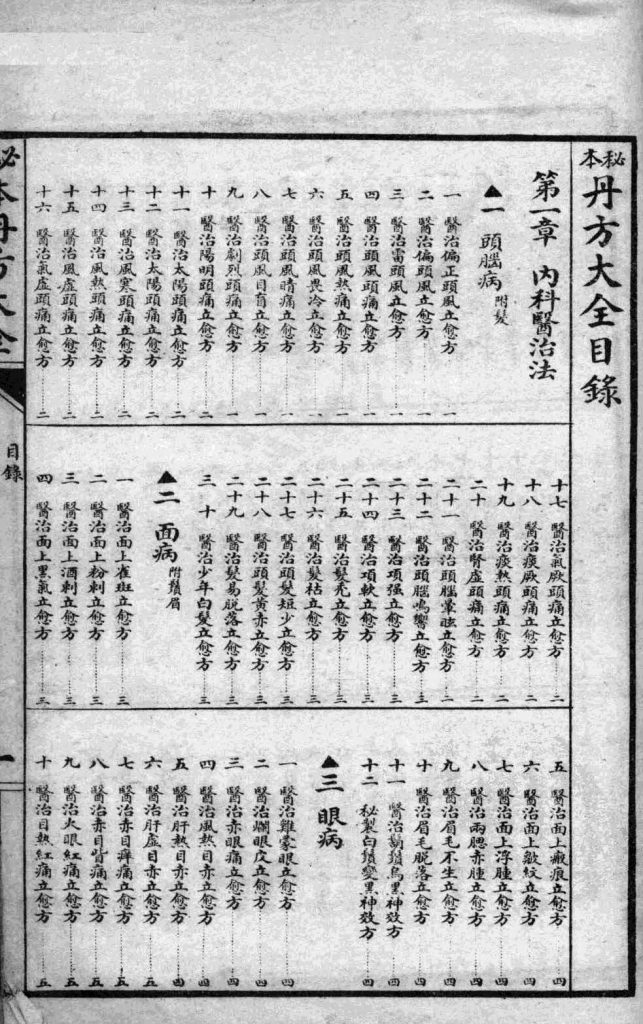 秘本丹方大全目錄
第一章 內科醫治法
▲一 頭腦病 附髮
一 醫治偏正頭風立愈方……一
二 醫治偏頭風立愈方……一
三 醫治雷頭風立愈方……一
四 醫治頭風頭痛立愈方……一
五 醫治頭風熱痛立愈方……一
六 醫治頭風畏冷立愈方……一
七 醫治頭風晴痛立愈方……一
八 醫治頭風目盲立愈方……一
九 醫治劇烈頭痛立愈方……一
十 醫治陽明頭痛立愈方……二
十一 醫治太陽頭痛立愈方……二
十二 醫治太陽頭痛立愈方……二
十三 醫治風寒頭痛立愈方……二
十四 醫治風熱頭痛立愈方……二
十五 醫治風虛頭痛立愈方……二
十六 醫治氣虛頭痛立愈方……二
十七 醫治氣厥頭痛立愈方……二
十八 醫治痰厥頭痛立愈方……二
十九 醫治痰熱頭痛立愈方……二
二十 醫治腎虛頭痛立愈方……二
二十一 醫治頭腦暈眩立愈方……二
二十二 醫治頭腦鳴響立愈方……三
二十三 醫治項强立愈方……三
二十四 醫治項軟立愈方……三
二十五 醫治髮禿立愈方……三
二十六 醫治髮枯立愈方……三
二十七 醫治頭髮短少立愈方……三
二十八 醫治頭髮黃赤立愈方……三
二十九 醫治髮易脫落立愈方……三
三十 醫治少年白髮立愈方……三
▲二 面病 附鬚眉
一 醫治面上雀斑立愈方……三
二 醫治面上粉刺立愈方……三
三 醫治面上酒刺立愈方……三
四 醫治面上黑氣立愈方……三
五 醫治面上瘢痕立愈方……四
六 醫治面上皺紋立愈方……四
七 醫治面上浮腫立愈方……四
八 醫治兩腮赤腫立愈方……四
九 醫治眉毛不生立愈方……四
十 醫治眉毛脫落立愈方……四
十一 醫治鬍鬚烏黑神效方……四
十二 秘製白鬚變黑神效方……四
▲三 眼病
一 醫治雞蒙眼立愈方……四
二 醫治爛眼皮立愈方……四
三 醫治赤眼痛立愈方……四
四 醫治風熱目赤立愈方……四
五 醫治肝熱目赤立愈方……四
六 醫治肝虛目赤立愈方……五
七 醫治赤目癢痛立愈方……五
八 醫治赤目眥痛立愈方……五
九 醫治火眼紅痛立愈方……五
十 醫治目熱紅痛立愈方……五
秘本丹方大全
目錄
一